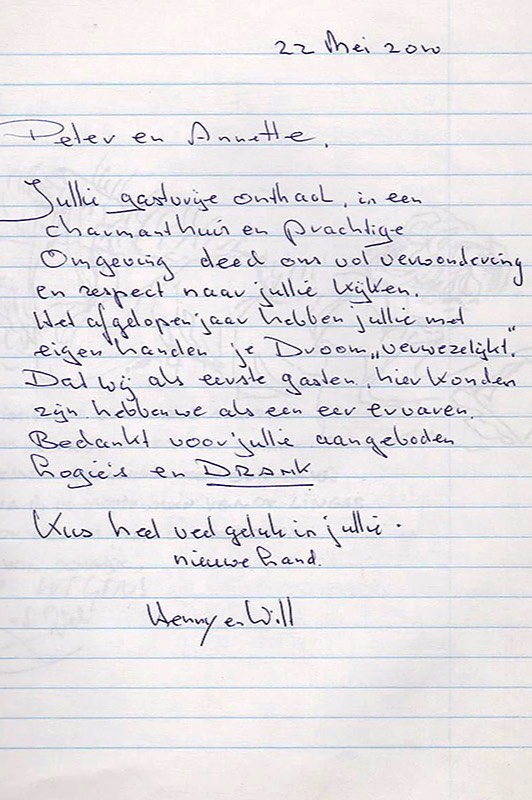 22 Mei 2010
Peter en Annette,
Jullie gastvrije onthaal, in een
charmanthuis en prachtige
Omgeving deed ons vol verwondering
en respect naar jullie kijken.
Het afgelopen jaar hebben jullie met
eigen handen je Droom „verwezelijkt".
Dat wij als eerste gasten, hier konden
zijn hebben we als een eer ervaren.
Bedankt voor jullie aangeboden
logies en DRANK
heel veel geluk in jullie
nieuwe land.
Henny en Will